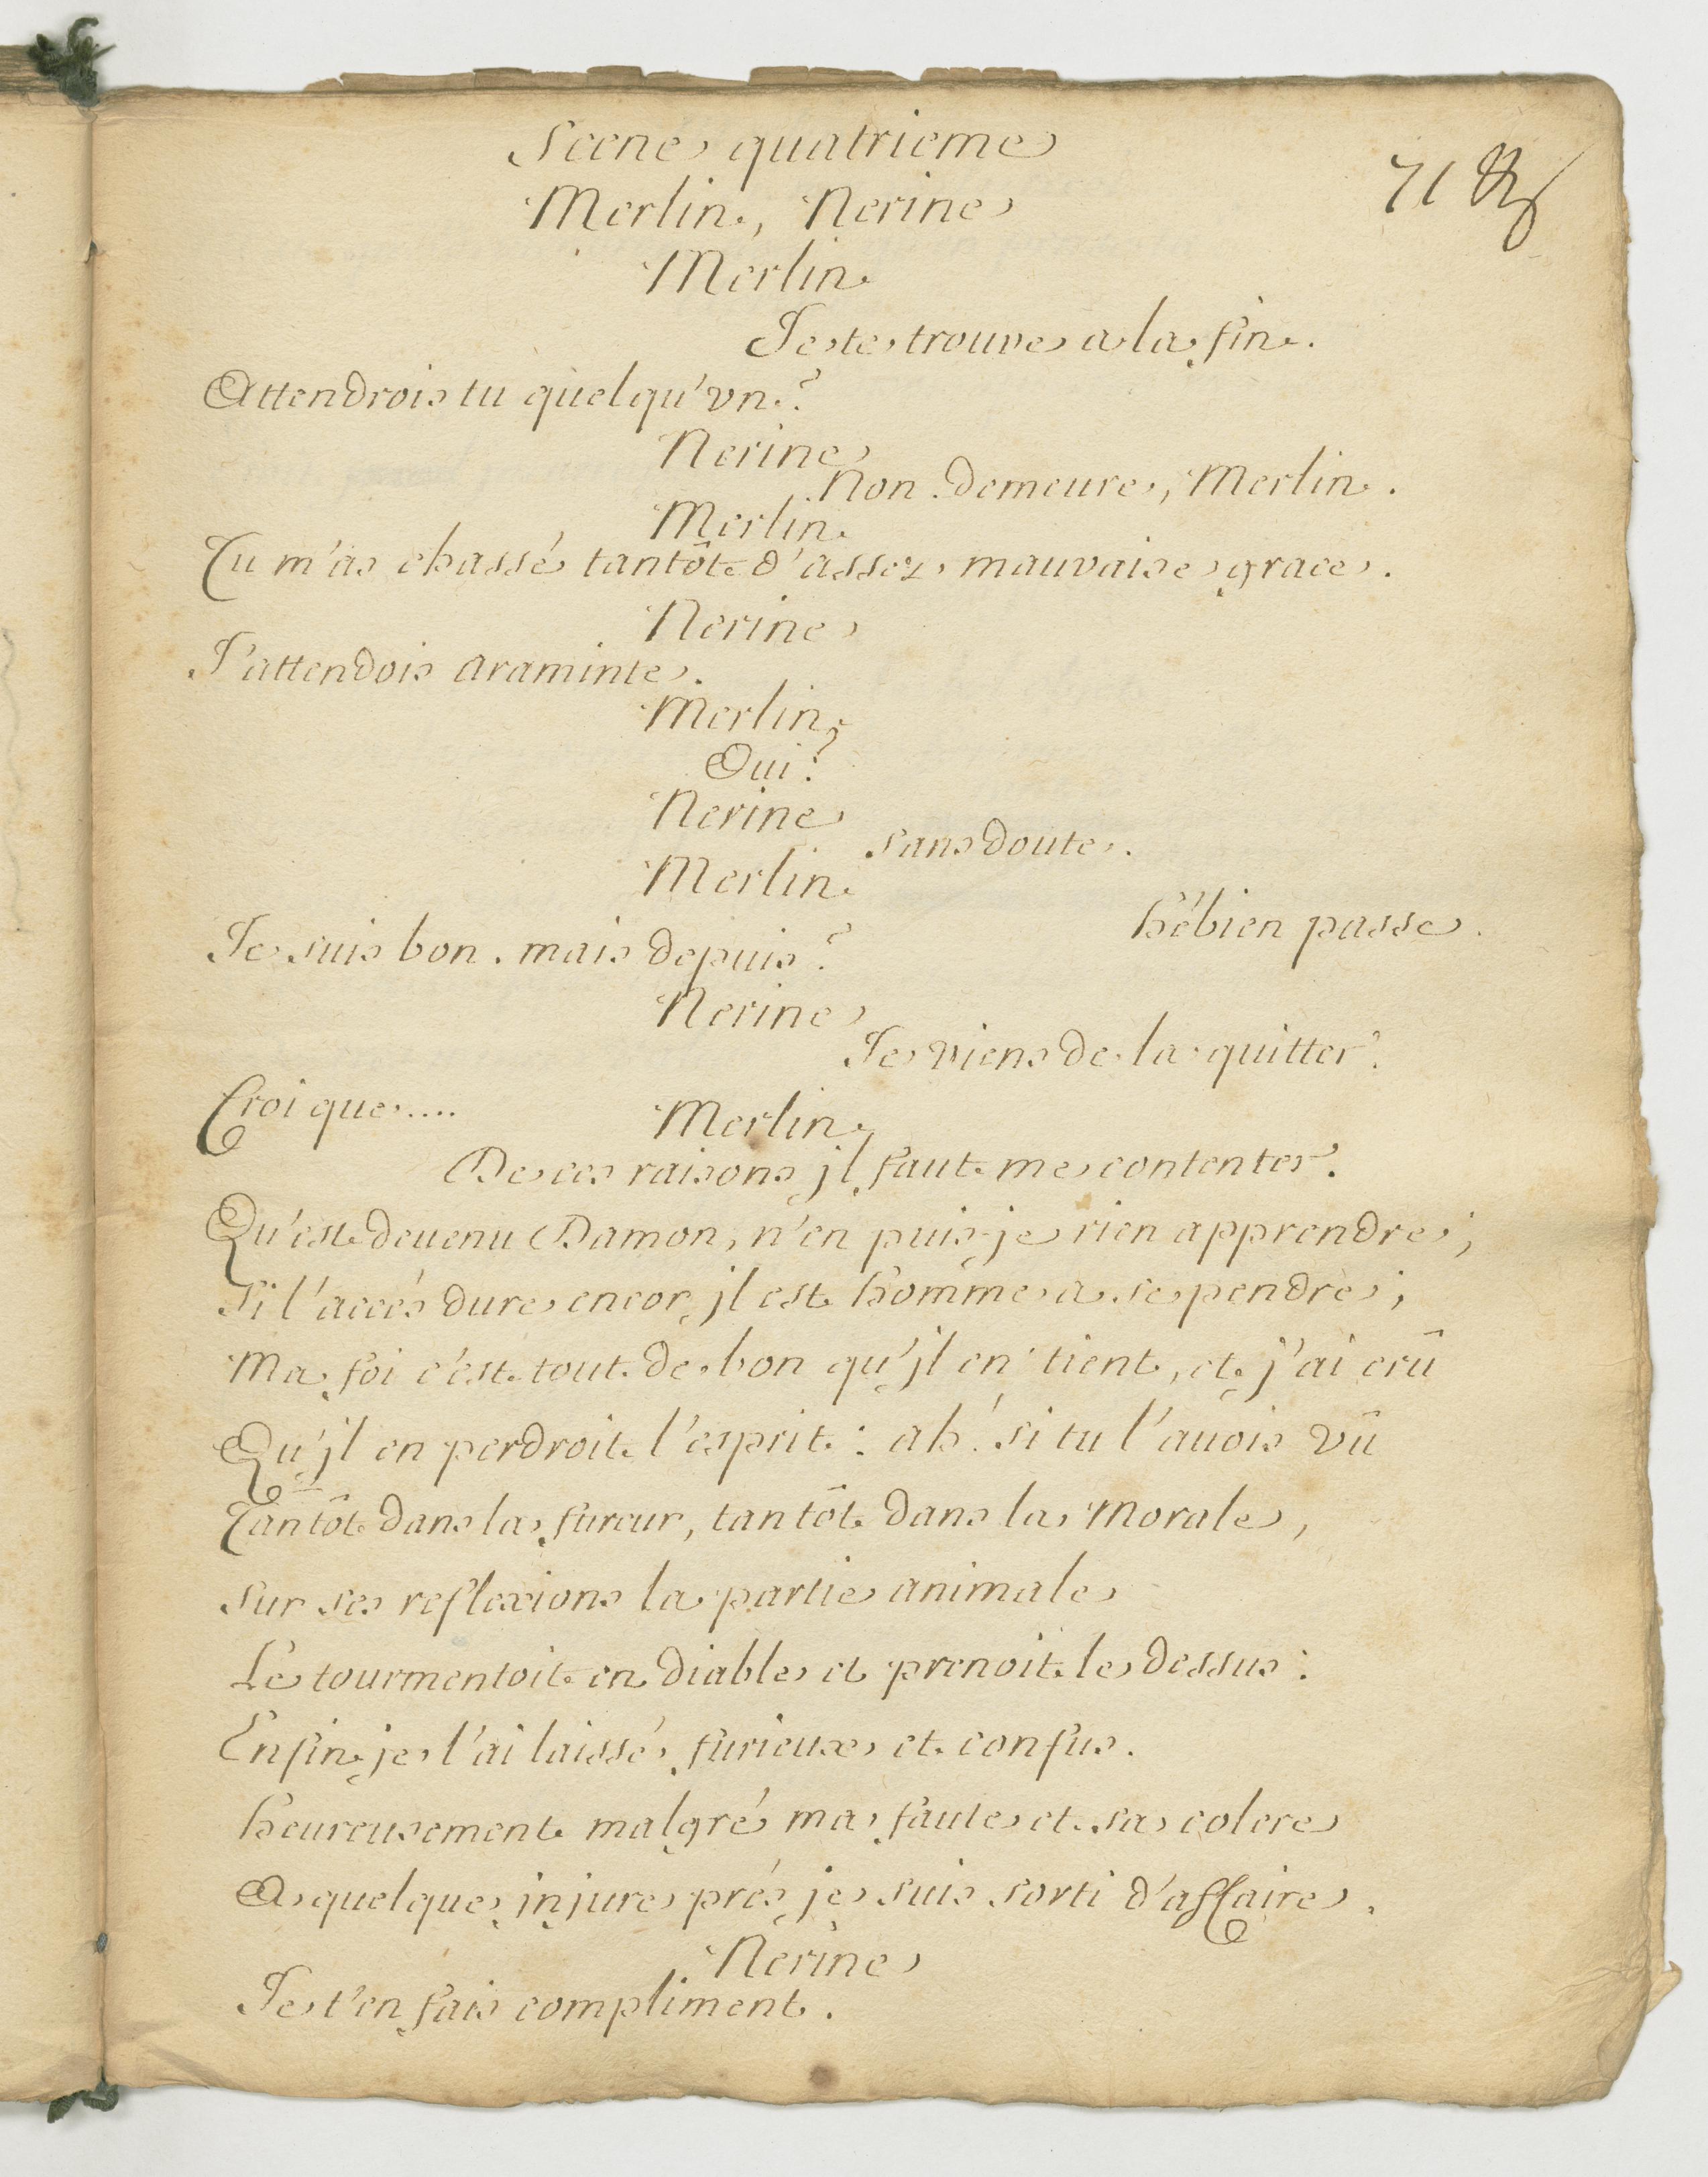 Scene quatrieme
71
Merlin, Nerine
Merlin
Je te trouve a la fin.
Attendrois tu quelqu'vn?
Nerine
Non. demeure, Merlin.
Merlin
Tu m'as chassé tantôt d'assez mauvaise grace.
Nerine
J'attendois Araminte.
Merlin
Oui?
Nerine
sans doute.
Merlin
hébien passe.
Je suis bon. mais depuis?
Nerine
Je viens de la quitter.
Croi que....
Merlin
De ces raisons jl faut me contenter.
Qu'est deuenu Damon, n'en puis-je rien apprendre;
Si l'accés dure encor, jl est homme a se pendre;
Ma foi c'est tout de bon qu'jl en tient, et j'ai crû
Qu'jl en perdroit l'esprit: ah! si tu l'auois vû
Tantôt dans la fureur, tantôt dans la Morale,
sur ses reflexions la partie animale
Le tourmentoit en diable et prenoit le dessus:
Enfin je l'ai laissé furieux et confus.
heureusement malgré ma faute et sa colere
A quelque injure prés je suis sorti d'affaire.
Nerine
Je t'en fais compliment.